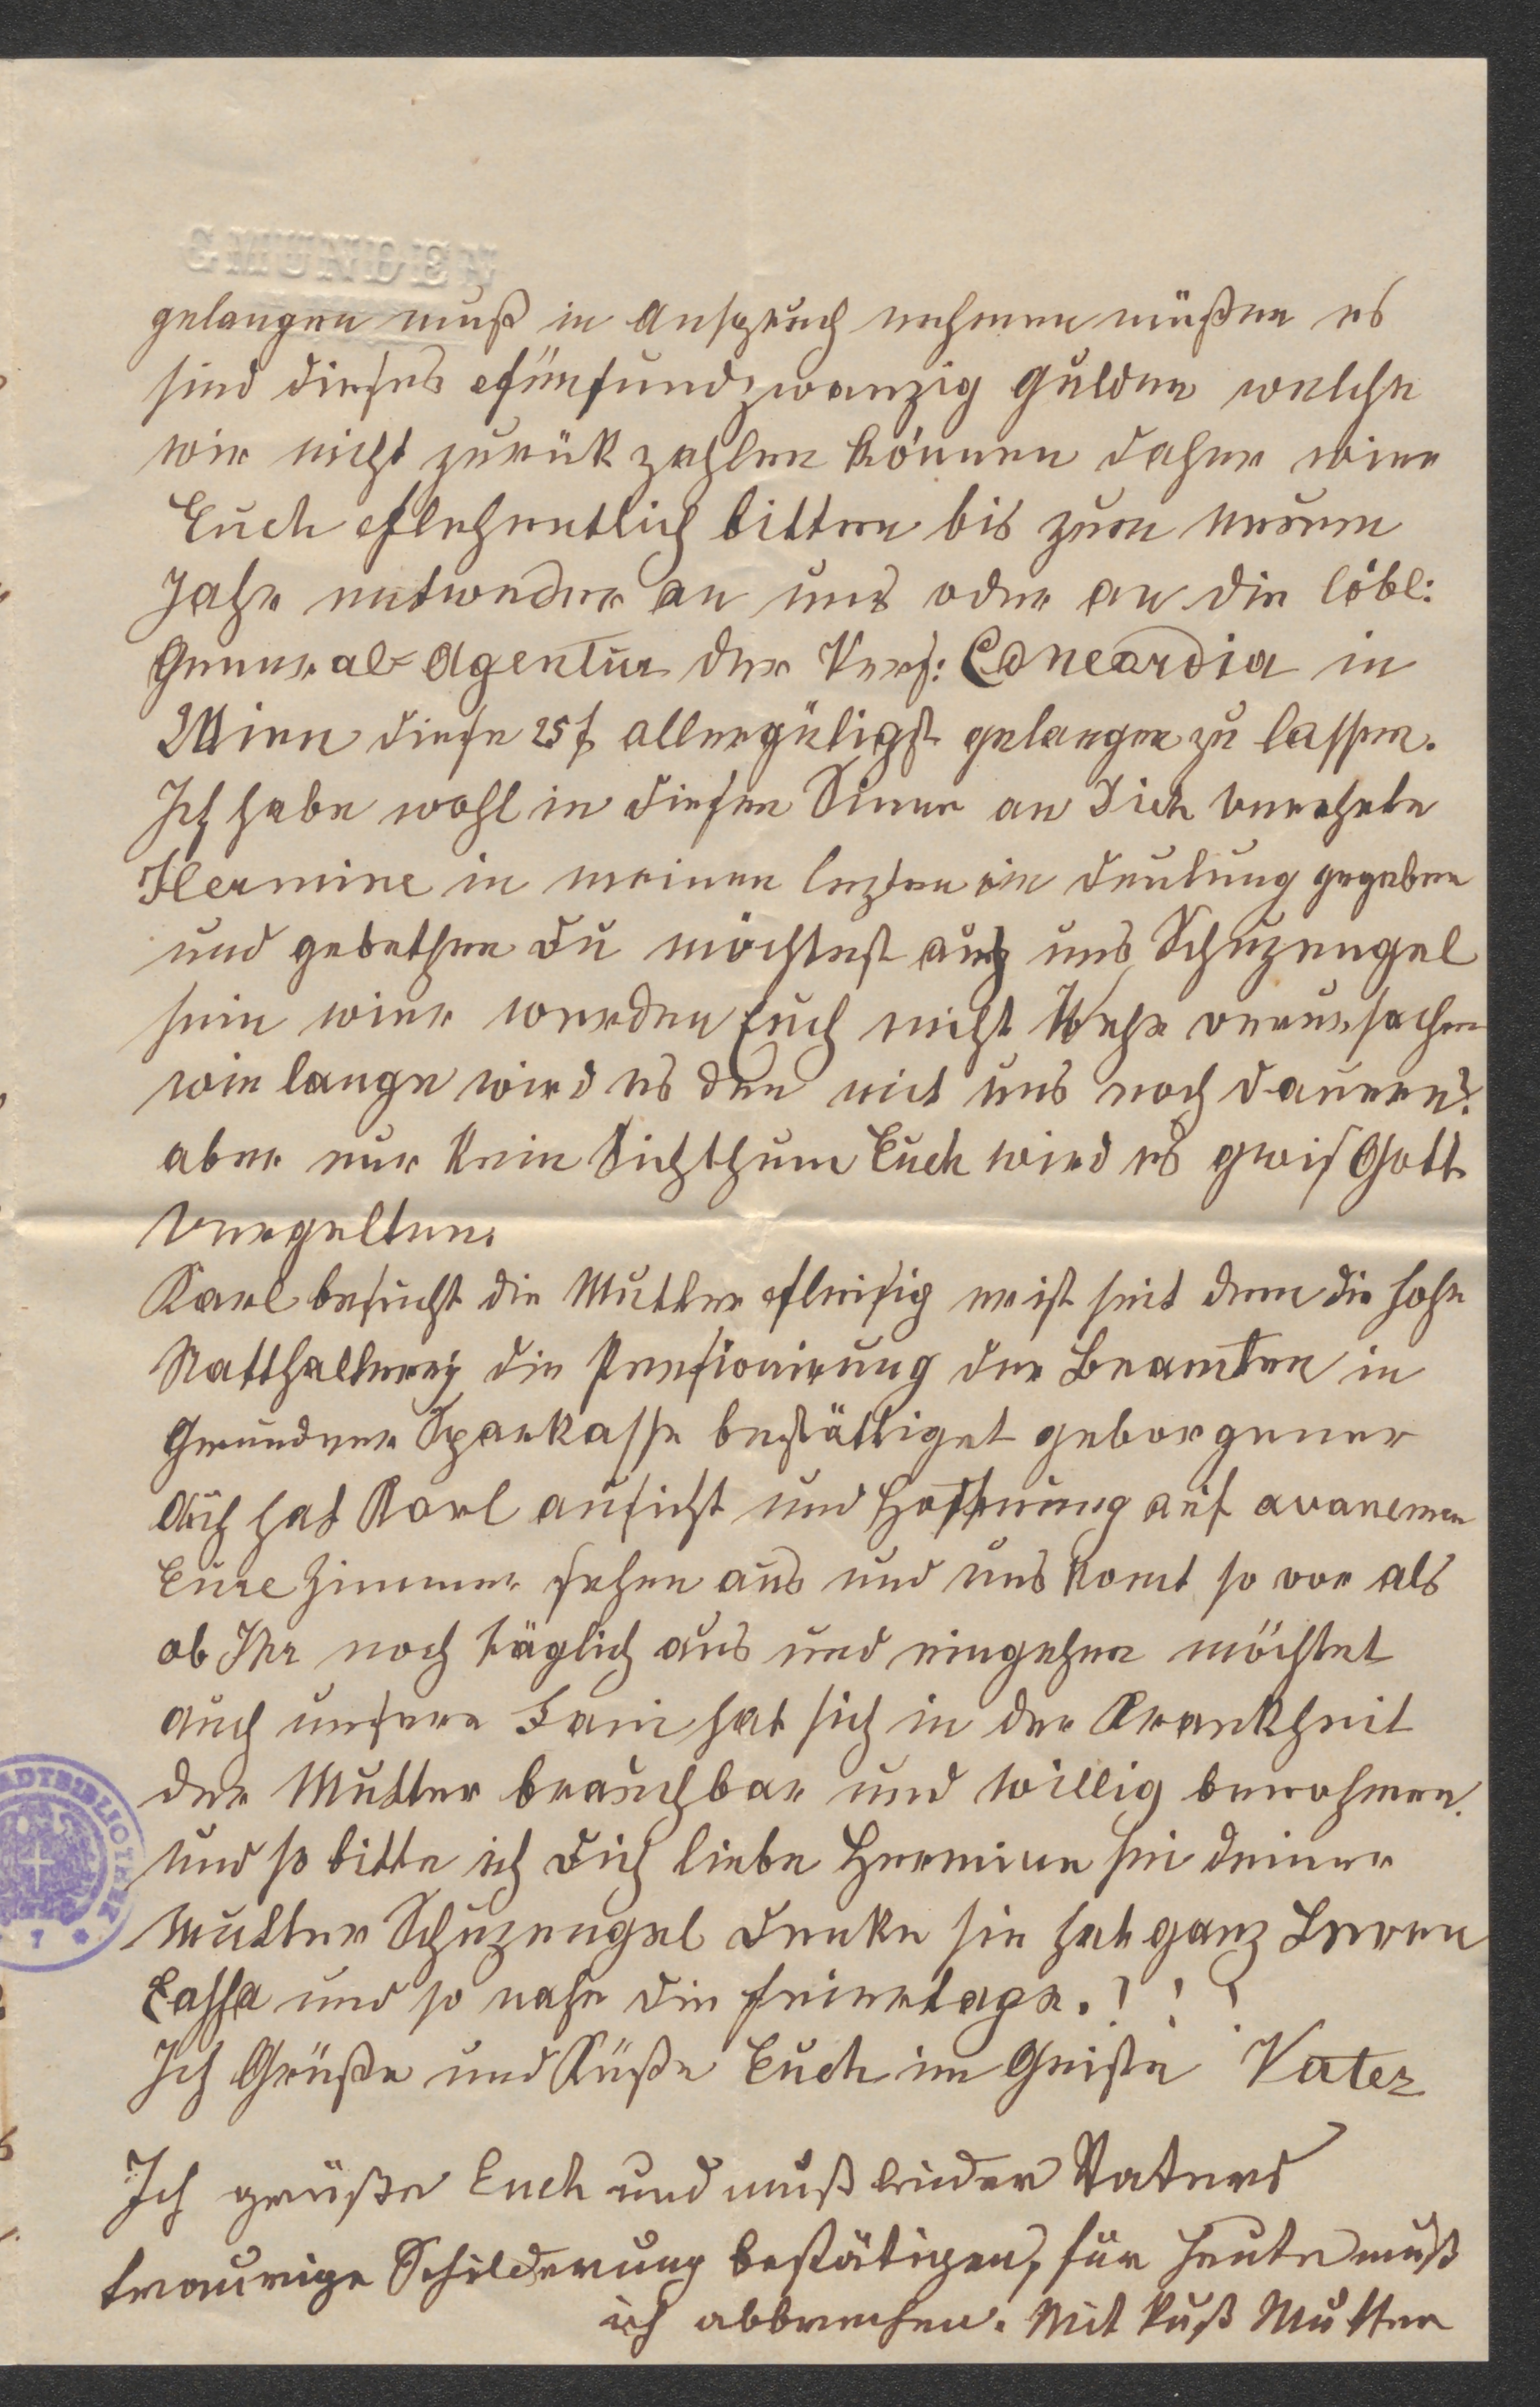 GMUNDEN
gelangen muß in Anspruch nehmen müßen es
sind dieses efünfundzwanzig Gulden welche
wir nicht zurük zahlen können daher wier
Euch eflehentlich bitten bis zum neuen
Jahr entweder an uns oder an die löbl:
General-Agentur der Vers: Concordia in
Wien diese 25 f allergütigst gelangen zu lassen.
Ich habe wohl in diesen Sinne an Dich verehrte
Hermine in meinen lezten ein deutung gegeben
und gebethen Du möchtest auch uns Schuzengel
sein wier werden Euch nicht Wehe verursachen
wie lange wird es den mit uns noch dauern?
aber nur kein Sichthum Euch wird es gwis Gott
vergelten.
Karl besucht die Mutter efleisig er ist seit dem die hohe
Statthalterei die Pensionirung der Beamten in
Gmundner Sparkasse bestättiget geborgener
Auch hat Karl ansicht und Hoffnung auf avancemen
Eure Zimmer sehen aus und uns komt so vor als
ob Ihr noch täglich aus und eingehen möchtet
auch unsere Fani hat sich in der Krankheit
der Mutter brauchbar und willig benohmen.
und so bitte ich Dich liebe Hermine sei deiner
Mutter Schuzengel denke sie hat ganz Leeren
Cassa und so nahe die Feiertage.! ! !
Ich Grüße und Küße Euch im Geiste Vater
Ich grüße Euch und muß leider Vaters
traurige Schilderung bestätigen, für heute muß
ich abbrechen. Mit Kuß Mutter